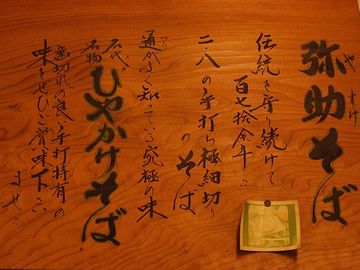 弥助そば
やすけ
伝統を守り続けて
百七拾余年‥
二・八の手打ち極細切り
のそば
通がよく知っている究極の味
つう
名代
名物
ひやかけそば
歯切れの良い手打特有の
味をぜひご賞味下さい
ませ‥